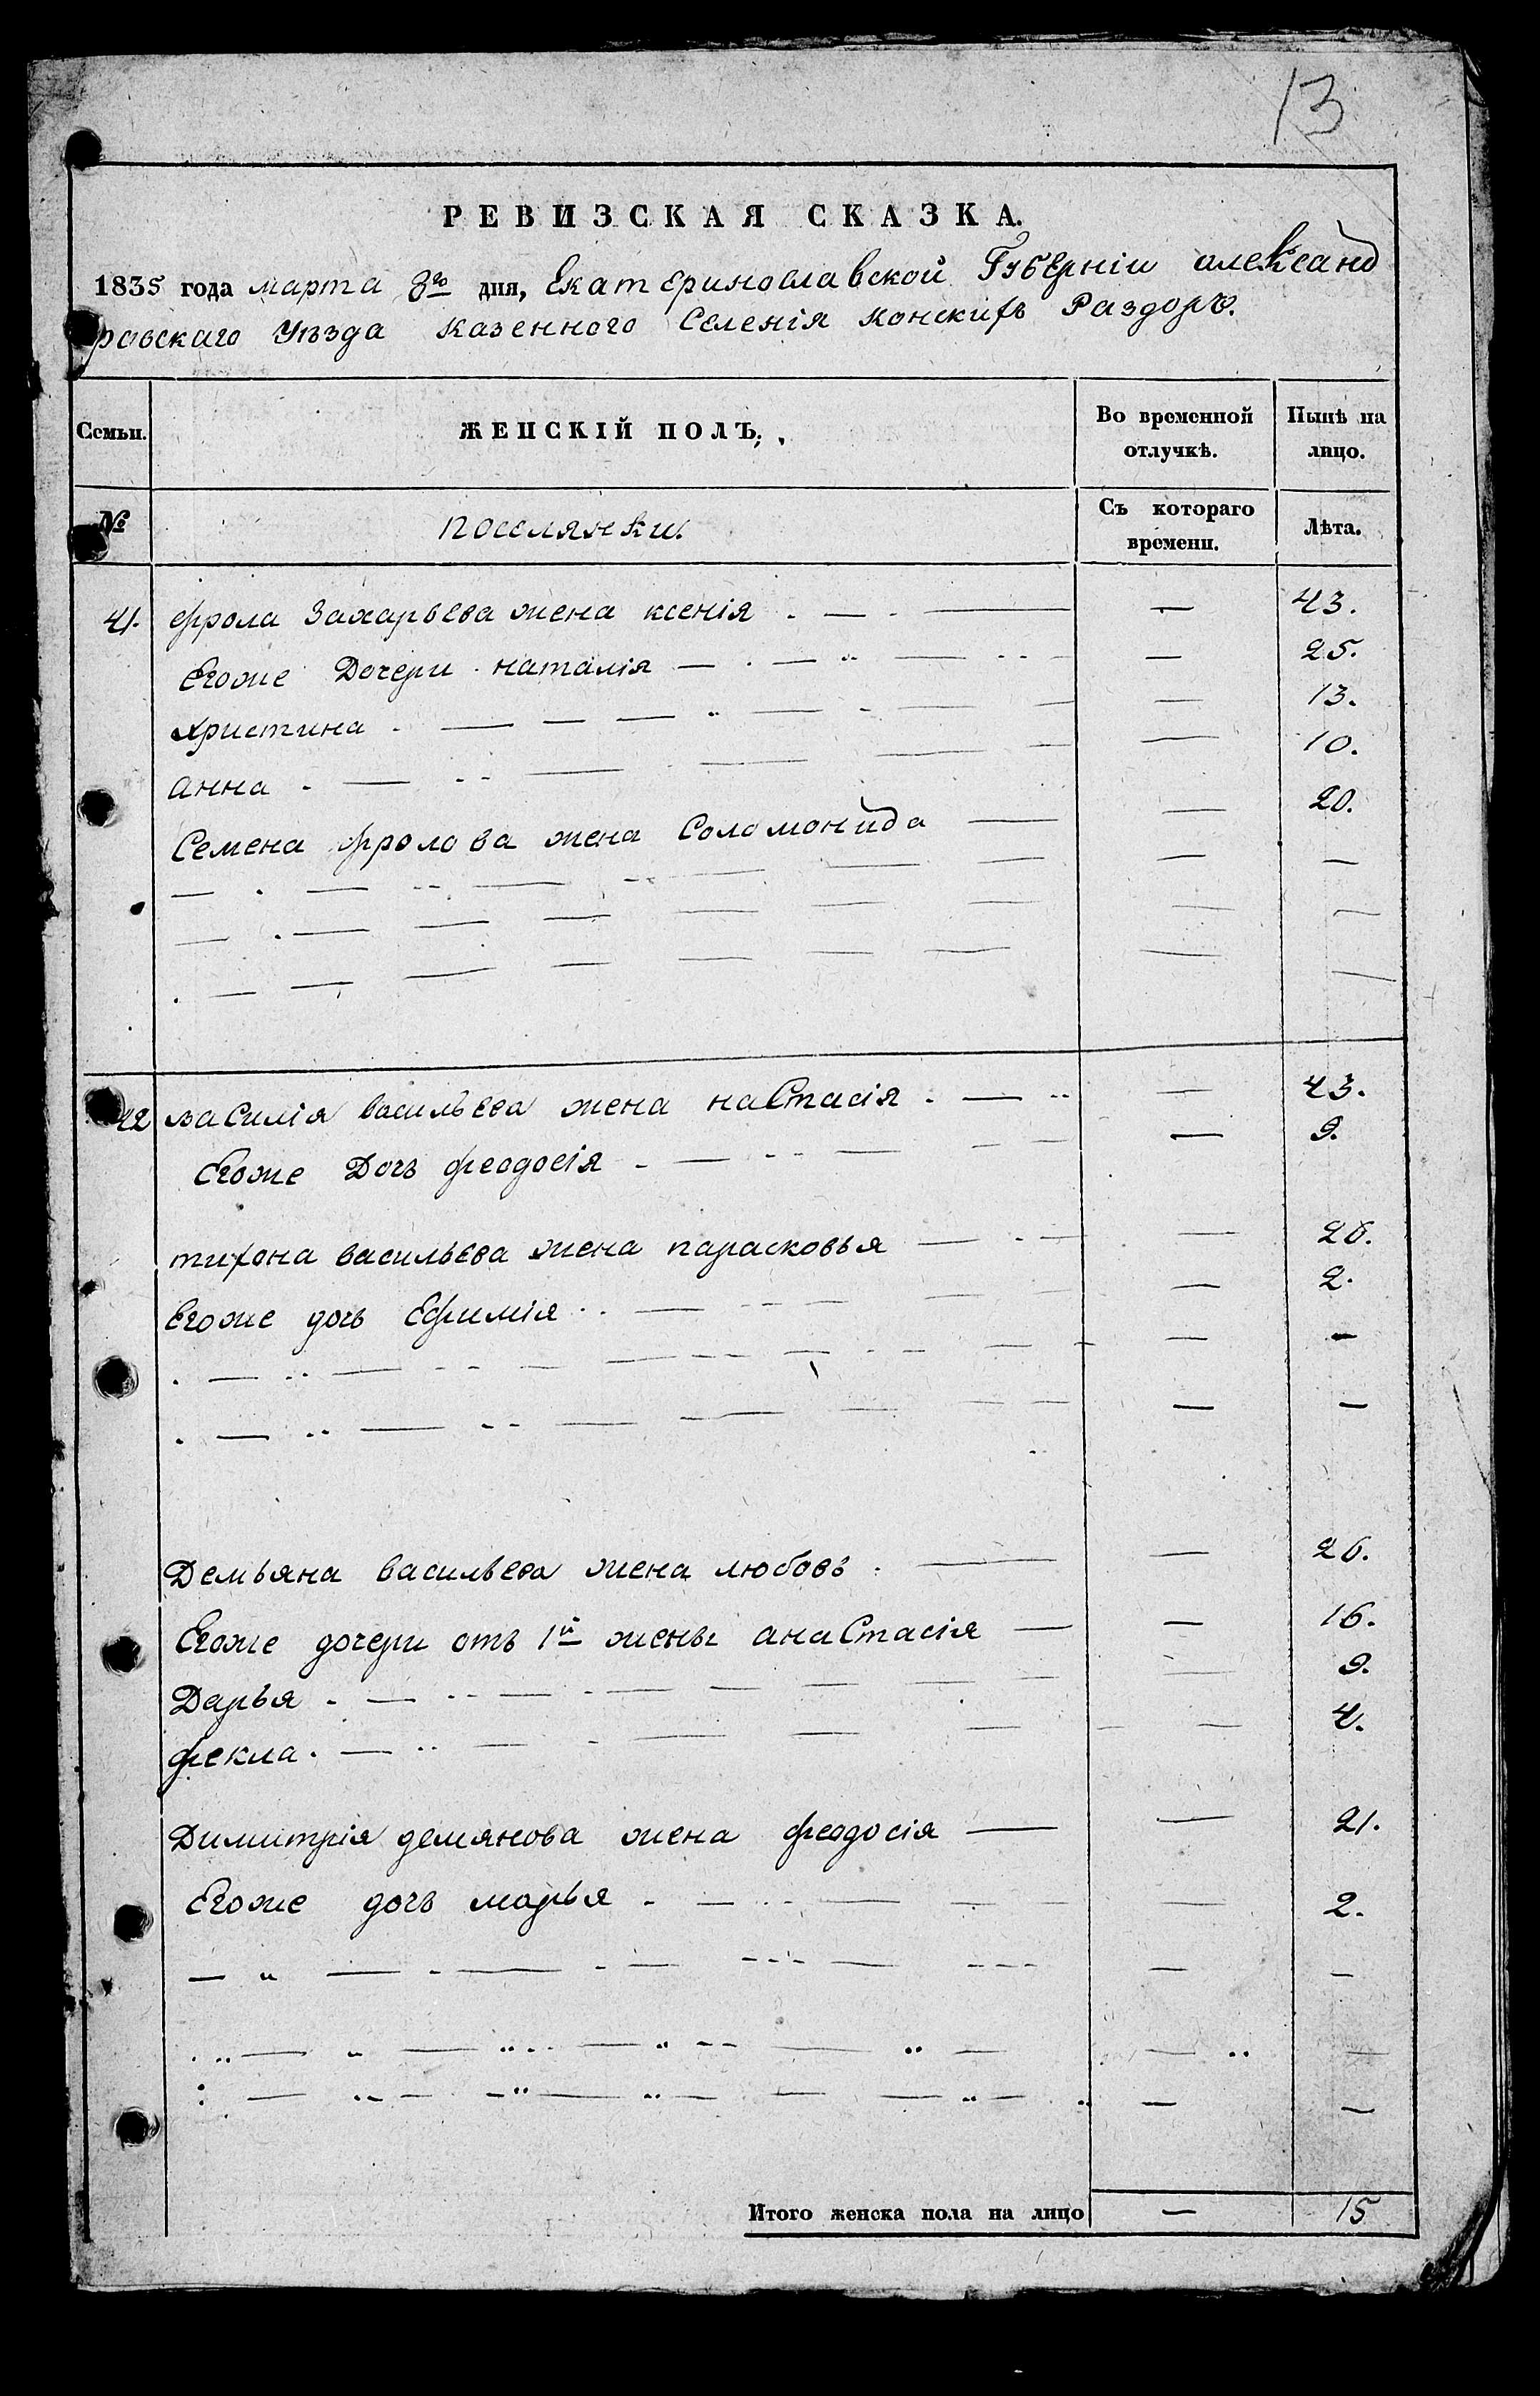 13
РЕВИЗСКАЯ СКАЗКА.
1835 года марта 3го дня, Екатеринославской Губерніи александ
ровскаго Уѣзда казенного Селенія конскихъ Раздоръ.
Семьи. ЖЕНСКІЙ ПОЛЪ. Во временной отлучкѣ. Нынѣ на лицо.
№ поселянки. Съ котораго времени. Лѣта.
41. фрола Захарьева жена ксенія — 43.
Егоже Дочери наталія — 25.
христина — 13.
анна — 10.
Семена фролова жена Соломонида — 20.
42 василія васильева жена наСтасія — 43.
Егоже Дочь феодосія — 9.
тихона васильева жена парасковья — 26.
Егоже дочь Ефимія — 2.
Демьяна васильева жена любовь — 26.
Егоже дочери отъ 1й жены анаСтасія — 16.
Дарья — 9.
фекла — 4.
Димитрія демянова жена феодосія — 21.
Егоже дочь марья — 2.
Итого женска пола на лицо — 15